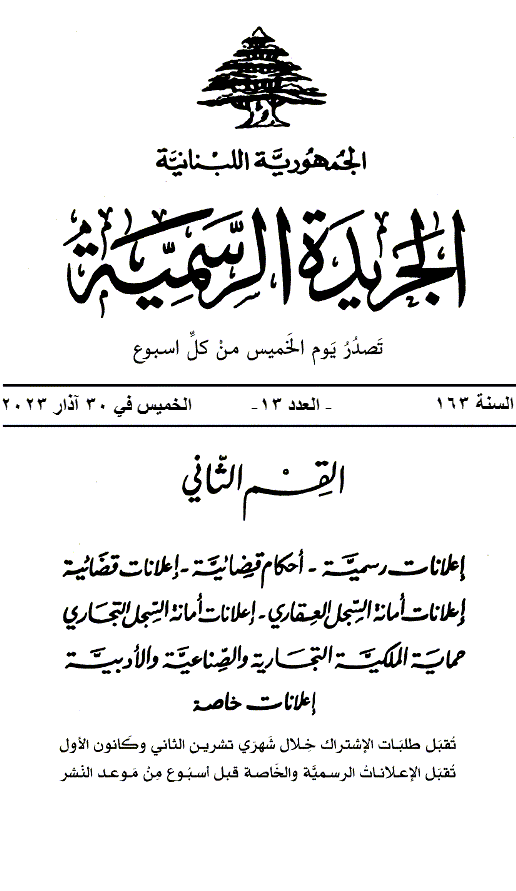 الجُمهُوريَّة اللبْنَانيَّة
الجَريدَة الرسَّمِيَّة
تَصدُرُ يَوم الخَميس منْ كلِّ اسبوع
السنة ١٦٣ - العدد ١٣- الخميس في ٣٠ آذار ٢٠٢٣
القِسْم الثّاني
إعلانات رسميَّة - أحكام قضائيَّة - إعلانات قضائية
إعلانات أمانة السِّجل العقاري - إعلانات أمانة السِّجل التجاري
حماية الملكيَّة التجارية والصِّناعيَّة والأدبيَّة
إعلانات خاصة
تُقبَل طلبَات الإشتراك خِلال شَهرَي تشرين الثاني وكَانون الأول
تُقبَل الإعلاناتُ الرسميَّة والخَاصة قبل أسبُوع مِنْ مَوعد النَشر